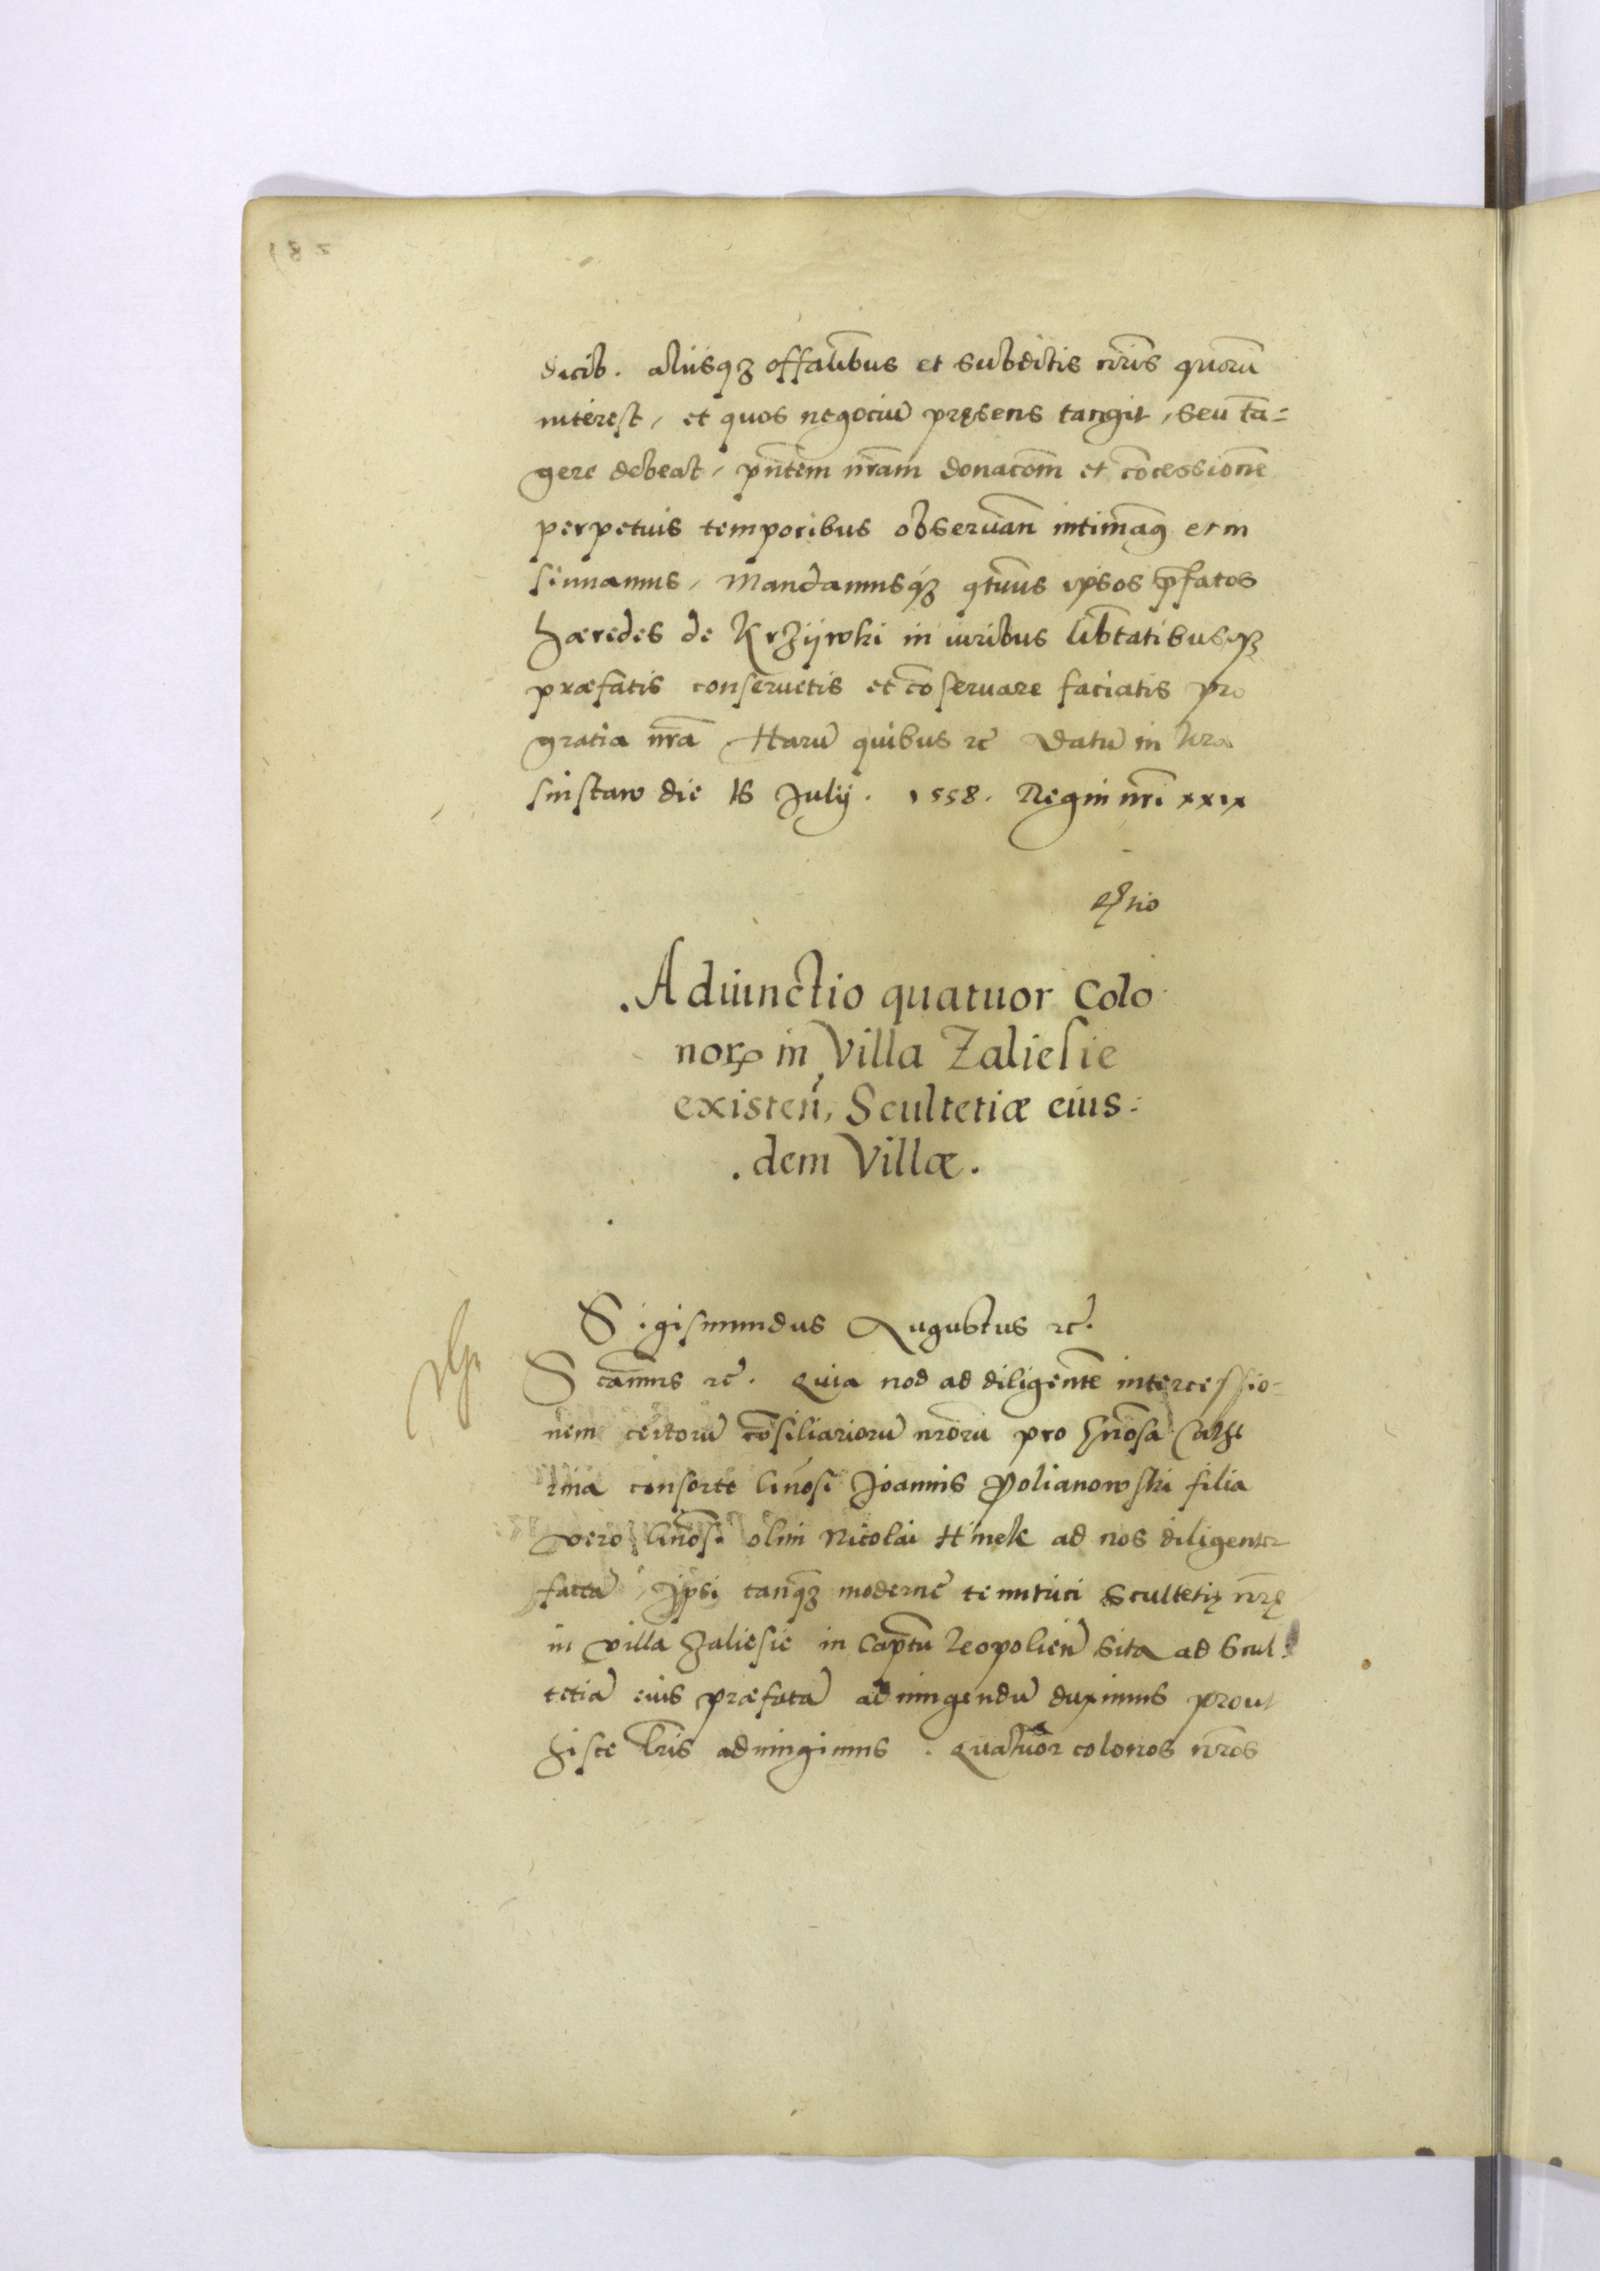 dicib. aliisqз offalibus et subditis nr̃is quorũ
interest, et quos negociũ pręsens tangit, seu tã=
gere debeat, pñtem nr̃am donacõm et cõcessionẽ
perpetuis temporibus obseruañ intimãq et in
sinuamus, Mandamusqз qtũus ipsos p̃fatos
hæredes de Krzijwki in iuribus lib̃tatibusqз
præfatis conseruetis et cõseruare faciatis pro
gratia nr̃a Harũ quibus rc̃ Datũ in Kra
snistaw die 16 Julij. 1558. Regni nr̃i xxix
Adiunctio quatuor Colo
norꝝ in Villa Zaliesie
existeñ, Scultetiæ eius=
dem Villæ.
Sigismundus Augustus rc̃.
S cam̃us rc̃. Quia nos ad diligentẽ intercessio=
nem certorũ cõsiliariorũ nr̃orũ pro gñosa Cathe
rina consorte gñosi Joannis Polianowski filia
vero gñosi olim Nicolai Hinek ad nos diligenter
factã, Ipsi tanqз modernẽ tenutrici Scultetię nr̃ę
in villa Zaliesie in Capt̃u Leopolieñ sita ad Scul=
tetiã eius præfatã adiungendũ duximus prout
hisce lr̃is adiungimus. Quatuor colonos nr̃os